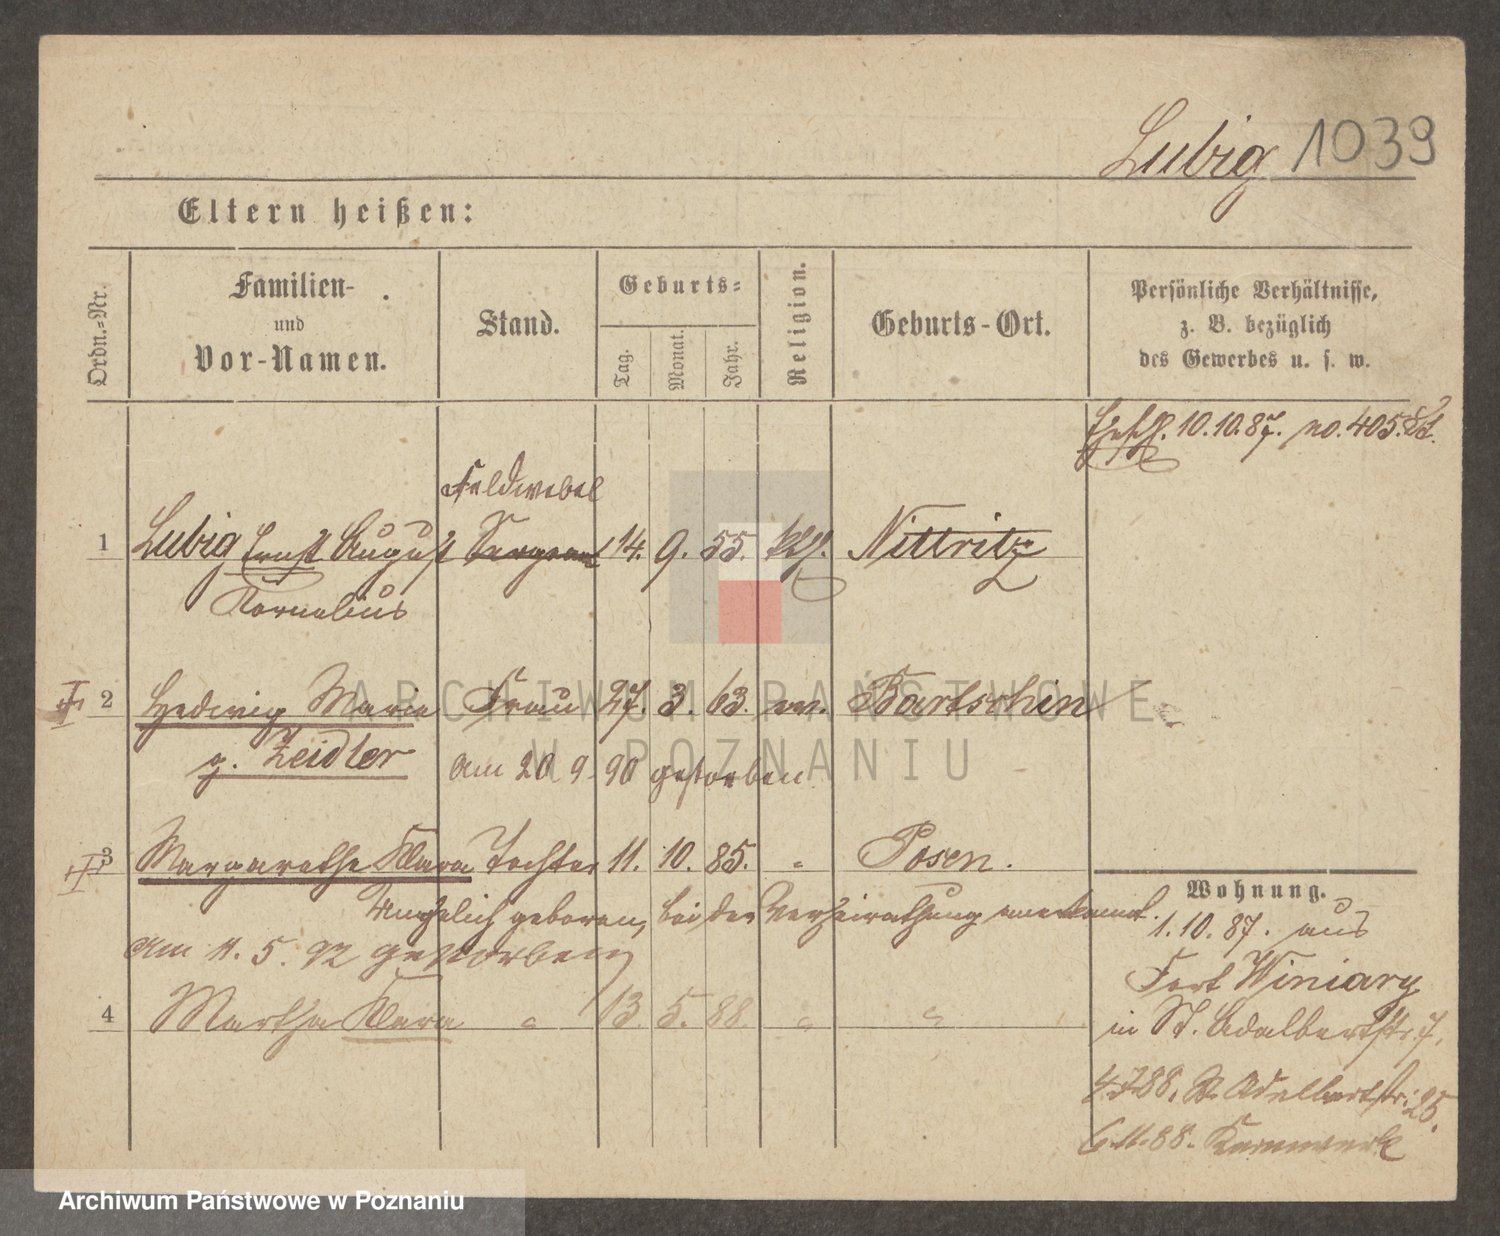 Lubig 1039
Eltern heißen:
Ordn.-Nr.
Familien-
und
Vor-Namen.
Stand.
Geburts-
Tag.
Monat.
Jahr.
Religion.
Geburts-Ort.
Persönliche Verhältnisse,
z. B. bezüglich
des Gewerbes u. s. w.
10.10.87. no. 405.
Feldwebel
1 Lubig Ernst August Sergeant 14. 9. 55. kth. Nittritz
Kornelius
2 Hedwig Marie Frau 27. 3. 63. ev. Bartschin
g. Zeidler am 20 9. 90 gestorben
3 Margarethe Klara Tochter 11. 10. 85. " Posen.
Unehelich geboren, bei der Verheirathung anerkannt.
am 11. 5. 92 gestorben
4 Martha Klara " 13. 5. 88. " "
Wohnung.
1.10.87. aus
Fort Winiary
in St. Adalbertstr. 7,
88. St. Adalbertstr. 25.
6.11.88. Kernwerk
ARCHIWUM PAŃSTWOWE
W POZNANIU
Archiwum Państwowe w Poznaniu